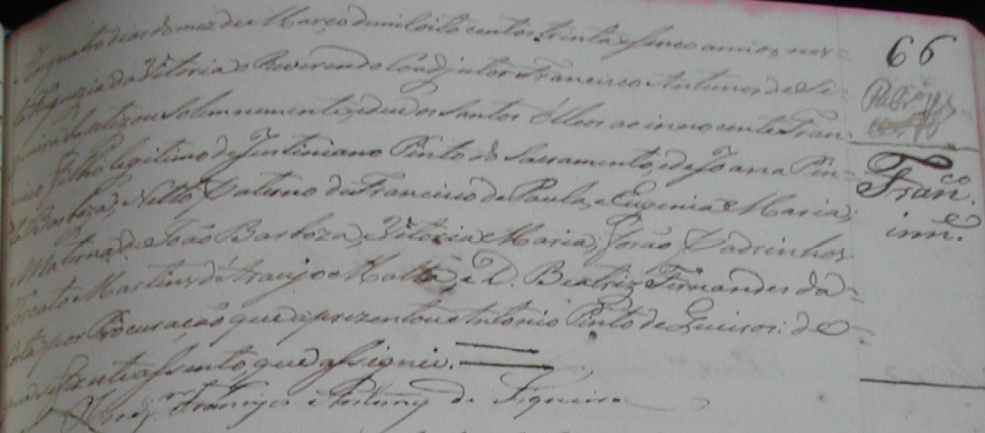 Aos quatro dias do mez de Março de mil oito centos trinta e sinco annos, nes-
ta freguezia da Vitoria o Reverendo Coadjutor Francisco Antunes de Se-
queira baptizou Solemnemente, e deu os Santos Olleos ao innocente Fran-
cisco, filho legitimo de Justiniano Pinto do Sacramento, e de Joana Pin-
ta Barboza, Netto Paterno de Francisco de Paula, e Eugenia Maria;
Materno de João Barboza, e Vitoria Maria; forão Padrinhos
Martins de Araujo e Matta, e D. Beatriz Fernandes da
por Procuração que aprezentou Antonio Pinto de Queiros: do
que fiz este assento, que assignei.
O Coadj.or Francisco Antunes de Siqueira
66
Fran.co
inn.e